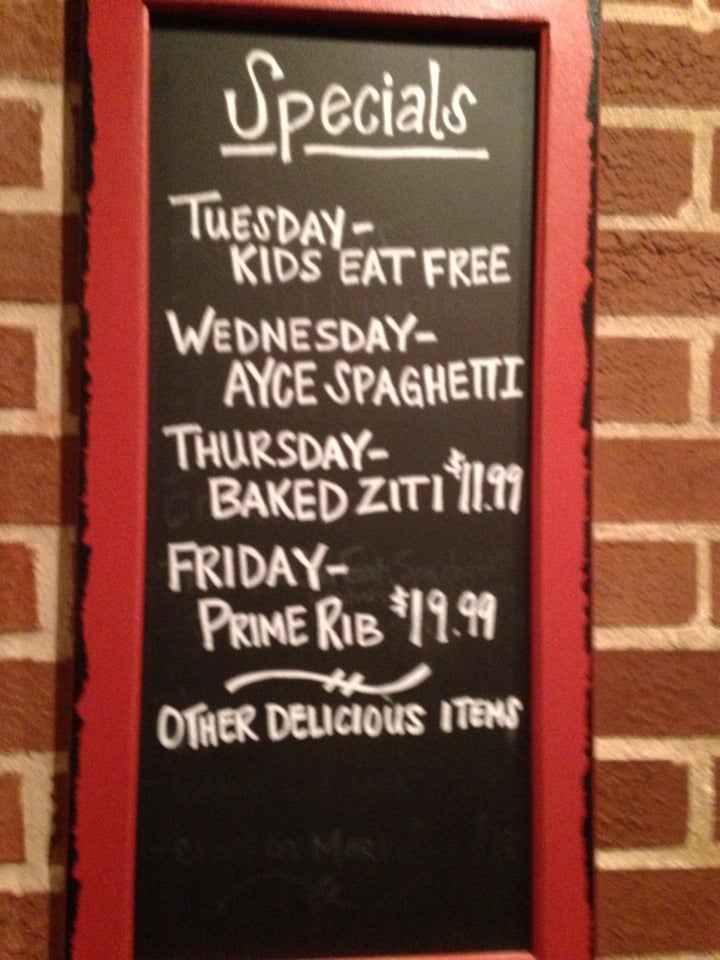 Specials
TUESDAY-
KIDS EAT FREE
WEDNESDAY-
AYCE SPAGHETTI
THURSDAY-
BAKED ZITI $11.99
FRIDAY-
PRIME RIB $19.99
OTHER DELICIOUS ITEMS